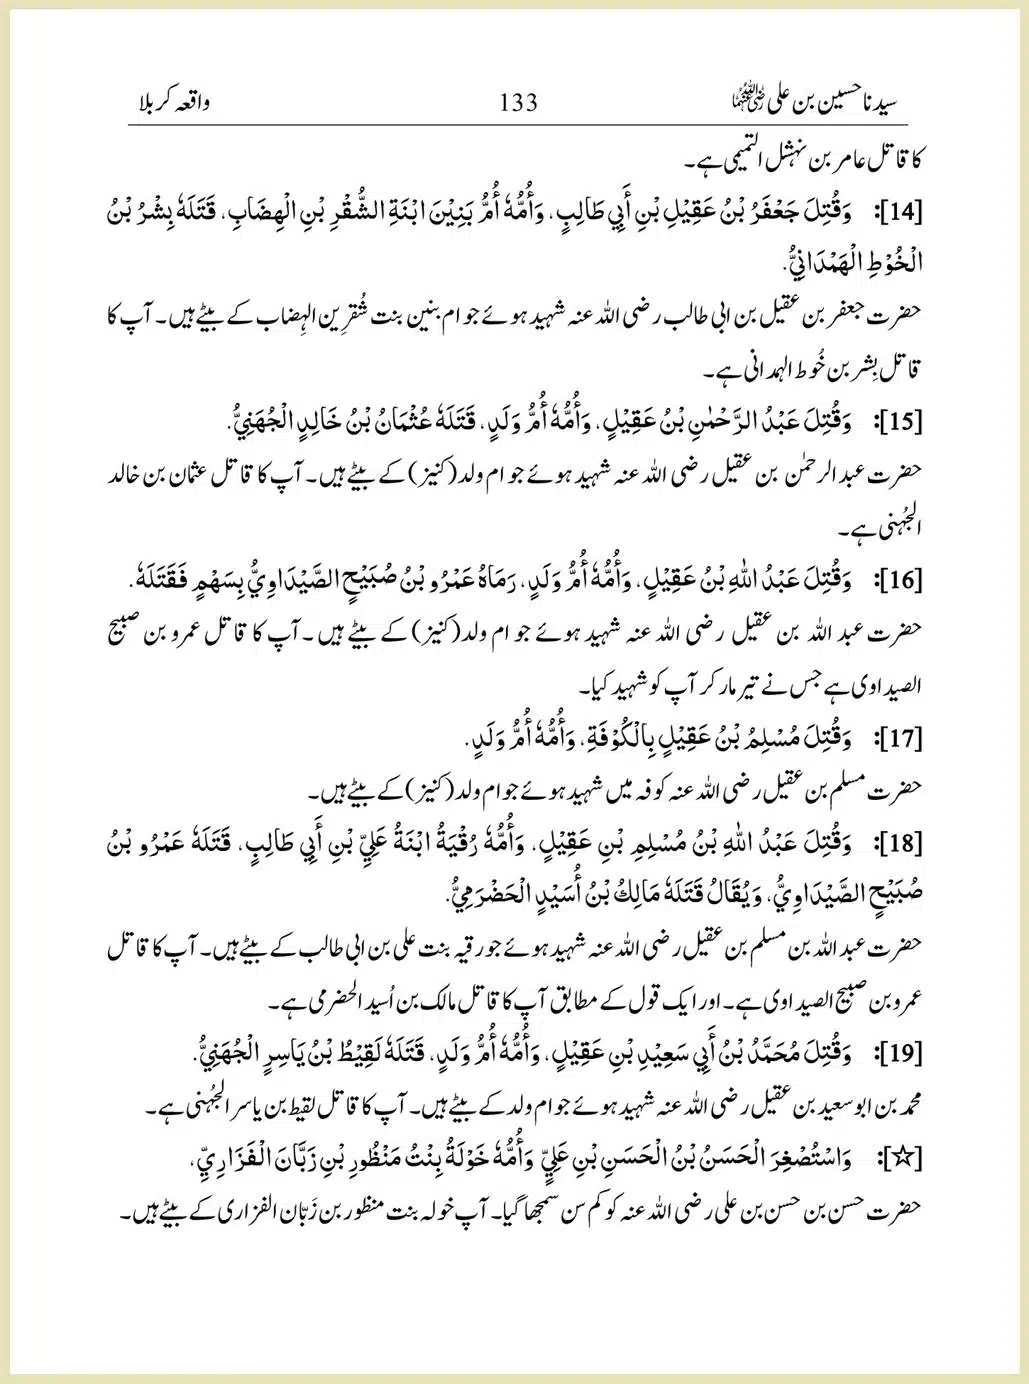 سیدنا حسین بن علی رضی اللہ عنہما 133 واقعہ کربلا
کا قاتل عامر بن نہشل التمیمی ہے۔
[14]: وَقُتِلَ جَعْفَرُ بْنُ عَقِيْلِ بْنِ أَبِي طَالِبٍ، وَأُمُّهٗ أُمُّ بَنِيْنَ ابْنَةِ الشُّقْرِ بْنِ الْهِضَابِ، قَتَلَهٗ بِشْرُ بْنُ
الْخُوْطِ الْهَمْدَانِيُّ.
حضرت جعفر بن عقیل بن ابی طالب رضی اللہ عنہ شہید ہوئے جو ام بنین بنت شُقرِین الہِضاب کے بیٹے ہیں۔ آپ کا
قاتل بِشر بن خُوط الہمدانی ہے۔
[15]: وَقُتِلَ عَبْدُ الرَّحْمٰنِ بْنُ عَقِيْلٍ، وَأُمُّهٗ أُمُّ وَلَدٍ، قَتَلَهٗ عُثْمَانُ بْنُ خَالِدٍ الْجُهَنِيُّ.
حضرت عبد الرحمٰن بن عقیل رضی اللہ عنہ شہید ہوئے جو ام ولد (کنیز) کے بیٹے ہیں۔ آپ کا قاتل عثمان بن خالد
الجُہنی ہے۔
[16]: وَقُتِلَ عَبْدُ اللّٰهِ بْنُ عَقِيْلٍ، وَأُمُّهٗ أُمُّ وَلَدٍ، رَمَاهُ عَمْرُو بْنُ صُبَيْحٍ الصَّيْدَاوِيُّ بِسَهْمٍ فَقَتَلَهٗ.
حضرت عبد اللہ بن عقیل رضی اللہ عنہ شہید ہوئے جو ام ولد (کنیز) کے بیٹے ہیں۔ آپ کا قاتل عمرو بن صبیح
الصیداوی ہے جس نے تیر مار کر آپ کو شہید کیا۔
[17]: وَقُتِلَ مُسْلِمُ بْنُ عَقِيْلٍ بِالْكُوْفَةِ، وَأُمُّهٗ أُمُّ وَلَدٍ.
حضرت مسلم بن عقیل رضی اللہ عنہ کوفہ میں شہید ہوئے جو ام ولد (کنیز) کے بیٹے ہیں۔
[18]: وَقُتِلَ عَبْدُ اللّٰهِ بْنُ مُسْلِمِ بْنِ عَقِيْلٍ، وَأُمُّهٗ رُقْيَةُ ابْنَةُ عَلِيِّ بْنِ أَبِي طَالِبٍ، قَتَلَهٗ عَمْرُو بْنُ
صُبَيْحٍ الصَّيْدَاوِيُّ، وَيُقَالُ قَتَلَهٗ مَالِكُ بْنُ أُسَيْدٍ الْحَضْرَمِيُّ.
حضرت عبد اللہ بن مسلم بن عقیل رضی اللہ عنہ شہید ہوئے جو رقیہ بنت علی بن ابی طالب کے بیٹے ہیں۔ آپ کا قاتل
عمرو بن صبیح الصیداوی ہے۔ اور ایک قول کے مطابق آپ کا قاتل مالک بن اُسید الحضرمی ہے۔
[19]: وَقُتِلَ مُحَمَّدُ بْنُ أَبِي سَعِيْدِ بْنِ عَقِيْلٍ، وَأُمُّهٗ أُمُّ وَلَدٍ، قَتَلَهٗ لَقِيْطُ بْنُ يَاسِرٍ الْجُهَنِيُّ.
محمد بن ابو سعید بن عقیل رضی اللہ عنہ شہید ہوئے جو ام ولد کے بیٹے ہیں۔ آپ کا قاتل لقیط بن یاسر الجُہنی ہے۔
[☆]: وَاسْتُصْغِرَ الْحَسَنُ بْنُ الْحَسَنِ بْنِ عَلِيٍّ وَأُمُّهٗ خَوْلَةُ بِنْتُ مَنْظُورِ بْنِ زَبَّانَ الْفَزَارِيِّ،
حضرت حسن بن حسن بن علی رضی اللہ عنہ کو کم سن سمجھا گیا۔ آپ خولہ بنت منظور بن زَبّان الفزاری کے بیٹے ہیں۔